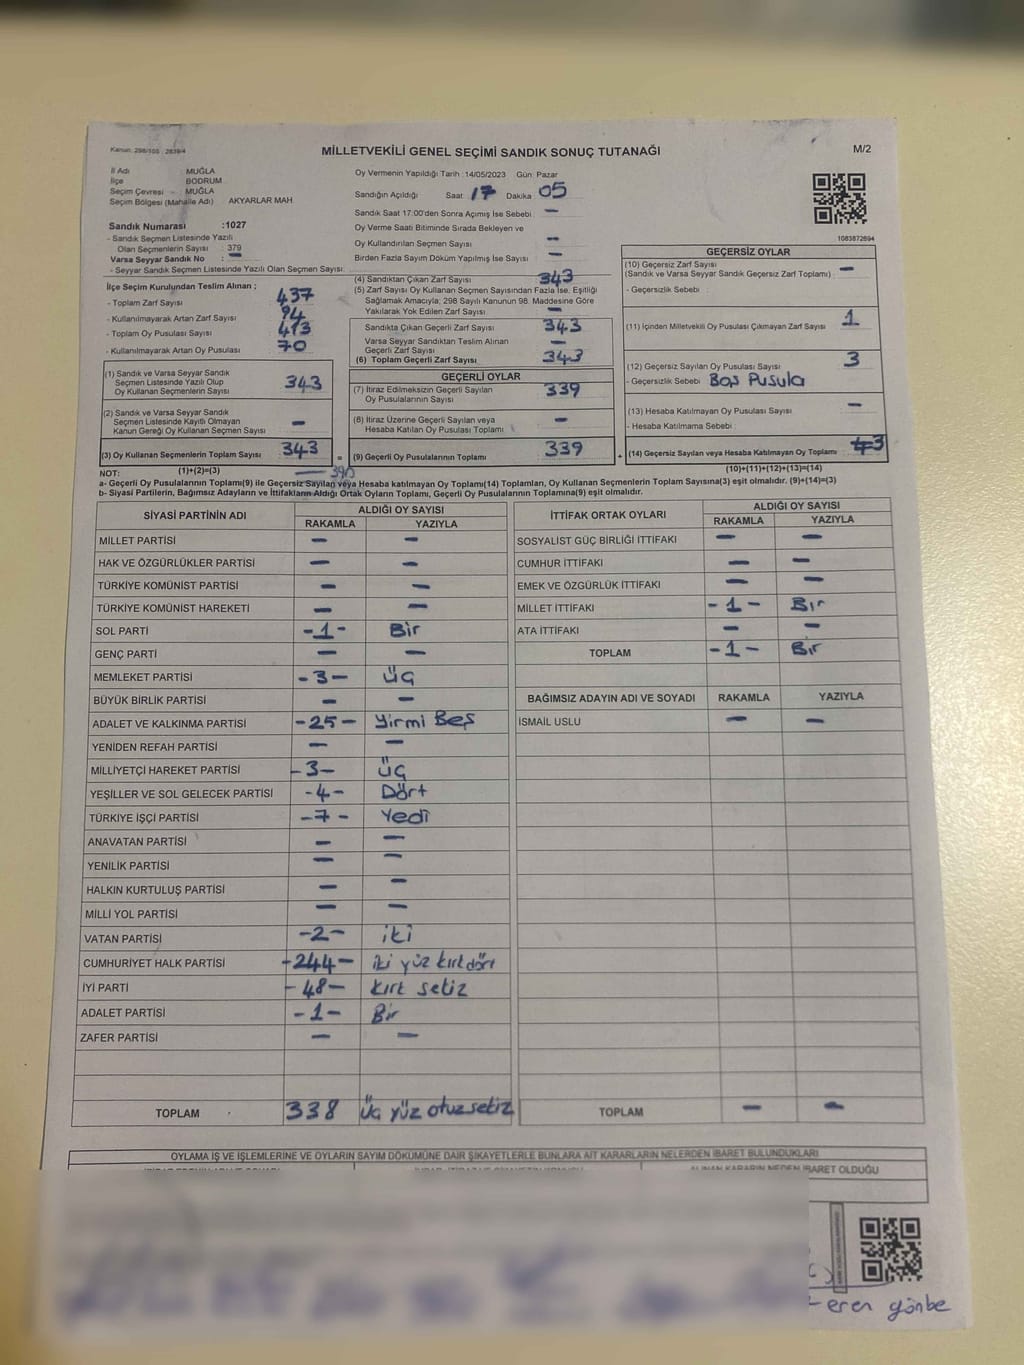 Kanun: 298/105 2839/4
MİLLETVEKİLİ GENEL SEÇİMİ SANDIK SONUÇ TUTANAĞI
M/2
İl Adı : MUĞLA
İlçe : BODRUM
Seçim Çevresi : MUĞLA
Seçim Bölgesi (Mahalle Adı) : AKYARLAR MAH.
Sandık Numarası :1027
- Sandık Seçmen Listesinde Yazılı
Olan Seçmenlerin Sayısı : 379
Varsa Seyyar Sandık No : —
- Seyyar Sandık Seçmen Listesinde Yazılı Olan Seçmen Sayısı:
Oy Vermenin Yapıldığı Tarih : 14/05/2023 Gün: Pazar
Sandığın Açıldığı Saat 17 Dakika 05
Sandık Saat 17:00'den Sonra Açımış İse Sebebi : —
Oy Verme Saati Bitiminde Sırada Bekleyen ve
Oy Kullandırılan Seçmen Sayısı : —
Birden Fazla Sayım Döküm Yapılmış İse Sayısı : —
1083872694
İlçe Seçim Kurulundan Teslim Alınan ;
- Toplam Zarf Sayısı : 437
- Kullanılmayarak Artan Zarf Sayısı : 94
- Toplam Oy Pusulası Sayısı : 413
- Kullanılmayarak Artan Oy Pusulası : 70
(1) Sandık ve Varsa Seyyar Sandık
Seçmen Listesinde Yazılı Olup
Oy Kullanan Seçmenlerin Sayısı 343
(2) Sandık ve Varsa Seyyar Sandık
Seçmen Listesinde Kayıtlı Olmayan
Kanun Gereği Oy Kullanan Seçmen Sayısı —
(3) Oy Kullanan Seçmenlerin Toplam Sayısı 343
(4) Sandıktan Çıkan Zarf Sayısı : 343
(5) Zarf Sayısı Oy Kullanan Seçmen Sayısından Fazla İse, Eşitliği
Sağlamak Amacıyla; 298 Sayılı Kanunun 98. Maddesine Göre
Yakılarak Yok Edilen Zarf Sayısı : —
Sandıkta Çıkan Geçerli Zarf Sayısı : 343
Varsa Seyyar Sandıktan Teslim Alınan
Geçerli Zarf Sayısı : —
(6) Toplam Geçerli Zarf Sayısı 343
GEÇERLİ OYLAR
(7) İtiraz Edilmeksizin Geçerli Sayılan
Oy Pusulalarının Sayısı : 339
(8) İtiraz Üzerine Geçerli Sayılan veya
Hesaba Katılan Oy Pusulası Toplamı : —
= (9) Geçerli Oy Pusulalarının Toplamı 339
GEÇERSİZ OYLAR
(10) Geçersiz Zarf Sayısı : —
(Sandık ve Varsa Seyyar Sandık Geçersiz Zarf Toplamı)
- Geçersizlik Sebebi :
(11) İçinden Milletvekili Oy Pusulası Çıkmayan Zarf Sayısı : 1
(12) Geçersiz Sayılan Oy Pusulası Sayısı : 3
- Geçersizlik Sebebi : Boş Pusula
(13) Hesaba Katılmayan Oy Pusulası Sayısı : —
- Hesaba Katılmama Sebebi :
+ (14) Geçersiz Sayılan veya Hesaba Katılmayan Oy Toplamı
NOT: (1)+(2)=(3)
(10)+(11)+(12)+(13)=(14)
a- Geçerli Oy Pusulalarının Toplamı(9) ile Geçersiz Sayılan veya Hesaba katılmayan Oy Toplamı(14) Toplamları, Oy Kullanan Seçmenlerin Toplam Sayısına(3) eşit olmalıdır. (9)+(14)=(3)
b- Siyasi Partilerin, Bağımsız Adayların ve İttifakların Aldığı Ortak Oyların Toplamı, Geçerli Oy Pusulalarının Toplamına(9) eşit olmalıdır.
SİYASİ PARTİNİN ADI ALDIĞI OY SAYISI
RAKAMLA YAZIYLA
MİLLET PARTİSİ — —
HAK VE ÖZGÜRLÜKLER PARTİSİ — —
TÜRKİYE KOMÜNİST PARTİSİ — —
TÜRKİYE KOMÜNİST HAREKETİ — —
SOL PARTİ -1- Bir
GENÇ PARTİ — —
MEMLEKET PARTİSİ -3- üç
BÜYÜK BİRLİK PARTİSİ — —
ADALET VE KALKINMA PARTİSİ -25- Yirmi Beş
YENİDEN REFAH PARTİSİ — —
MİLLİYETÇİ HAREKET PARTİSİ -3- üç
YEŞİLLER VE SOL GELECEK PARTİSİ -4- Dört
TÜRKİYE İŞÇİ PARTİSİ -7- Yedi
ANAVATAN PARTİSİ — —
YENİLİK PARTİSİ — —
HALKIN KURTULUŞ PARTİSİ — —
MİLLİ YOL PARTİSİ — —
VATAN PARTİSİ -2- iki
CUMHURİYET HALK PARTİSİ -244- iki yüz kırk dört
İYİ PARTİ -48- kırk sekiz
ADALET PARTİSİ -1- Bir
ZAFER PARTİSİ — —
TOPLAM 338 üç yüz otuzsekiz
İTTİFAK ORTAK OYLARI ALDIĞI OY SAYISI
RAKAMLA YAZIYLA
SOSYALİST GÜÇ BİRLİĞİ İTTİFAKI — —
CUMHUR İTTİFAKI — —
EMEK VE ÖZGÜRLÜK İTTİFAKI — —
MİLLET İTTİFAKI -1- Bir
ATA İTTİFAKI — —
TOPLAM -1- Bir
BAĞIMSIZ ADAYIN ADI VE SOYADI RAKAMLA YAZIYLA
İSMAİL USLU — —
TOPLAM — —
OYLAMA İŞ VE İŞLEMLERİNE VE OYLARIN SAYIM DÖKÜMÜNE DAİR ŞİKAYETLERLE BUNLARA AİT KARARLARIN NELERDEN İBARET BULUNDUKLARI
ALINAN KARARIN NEDEN İBARET OLDUĞU
eren gönbe